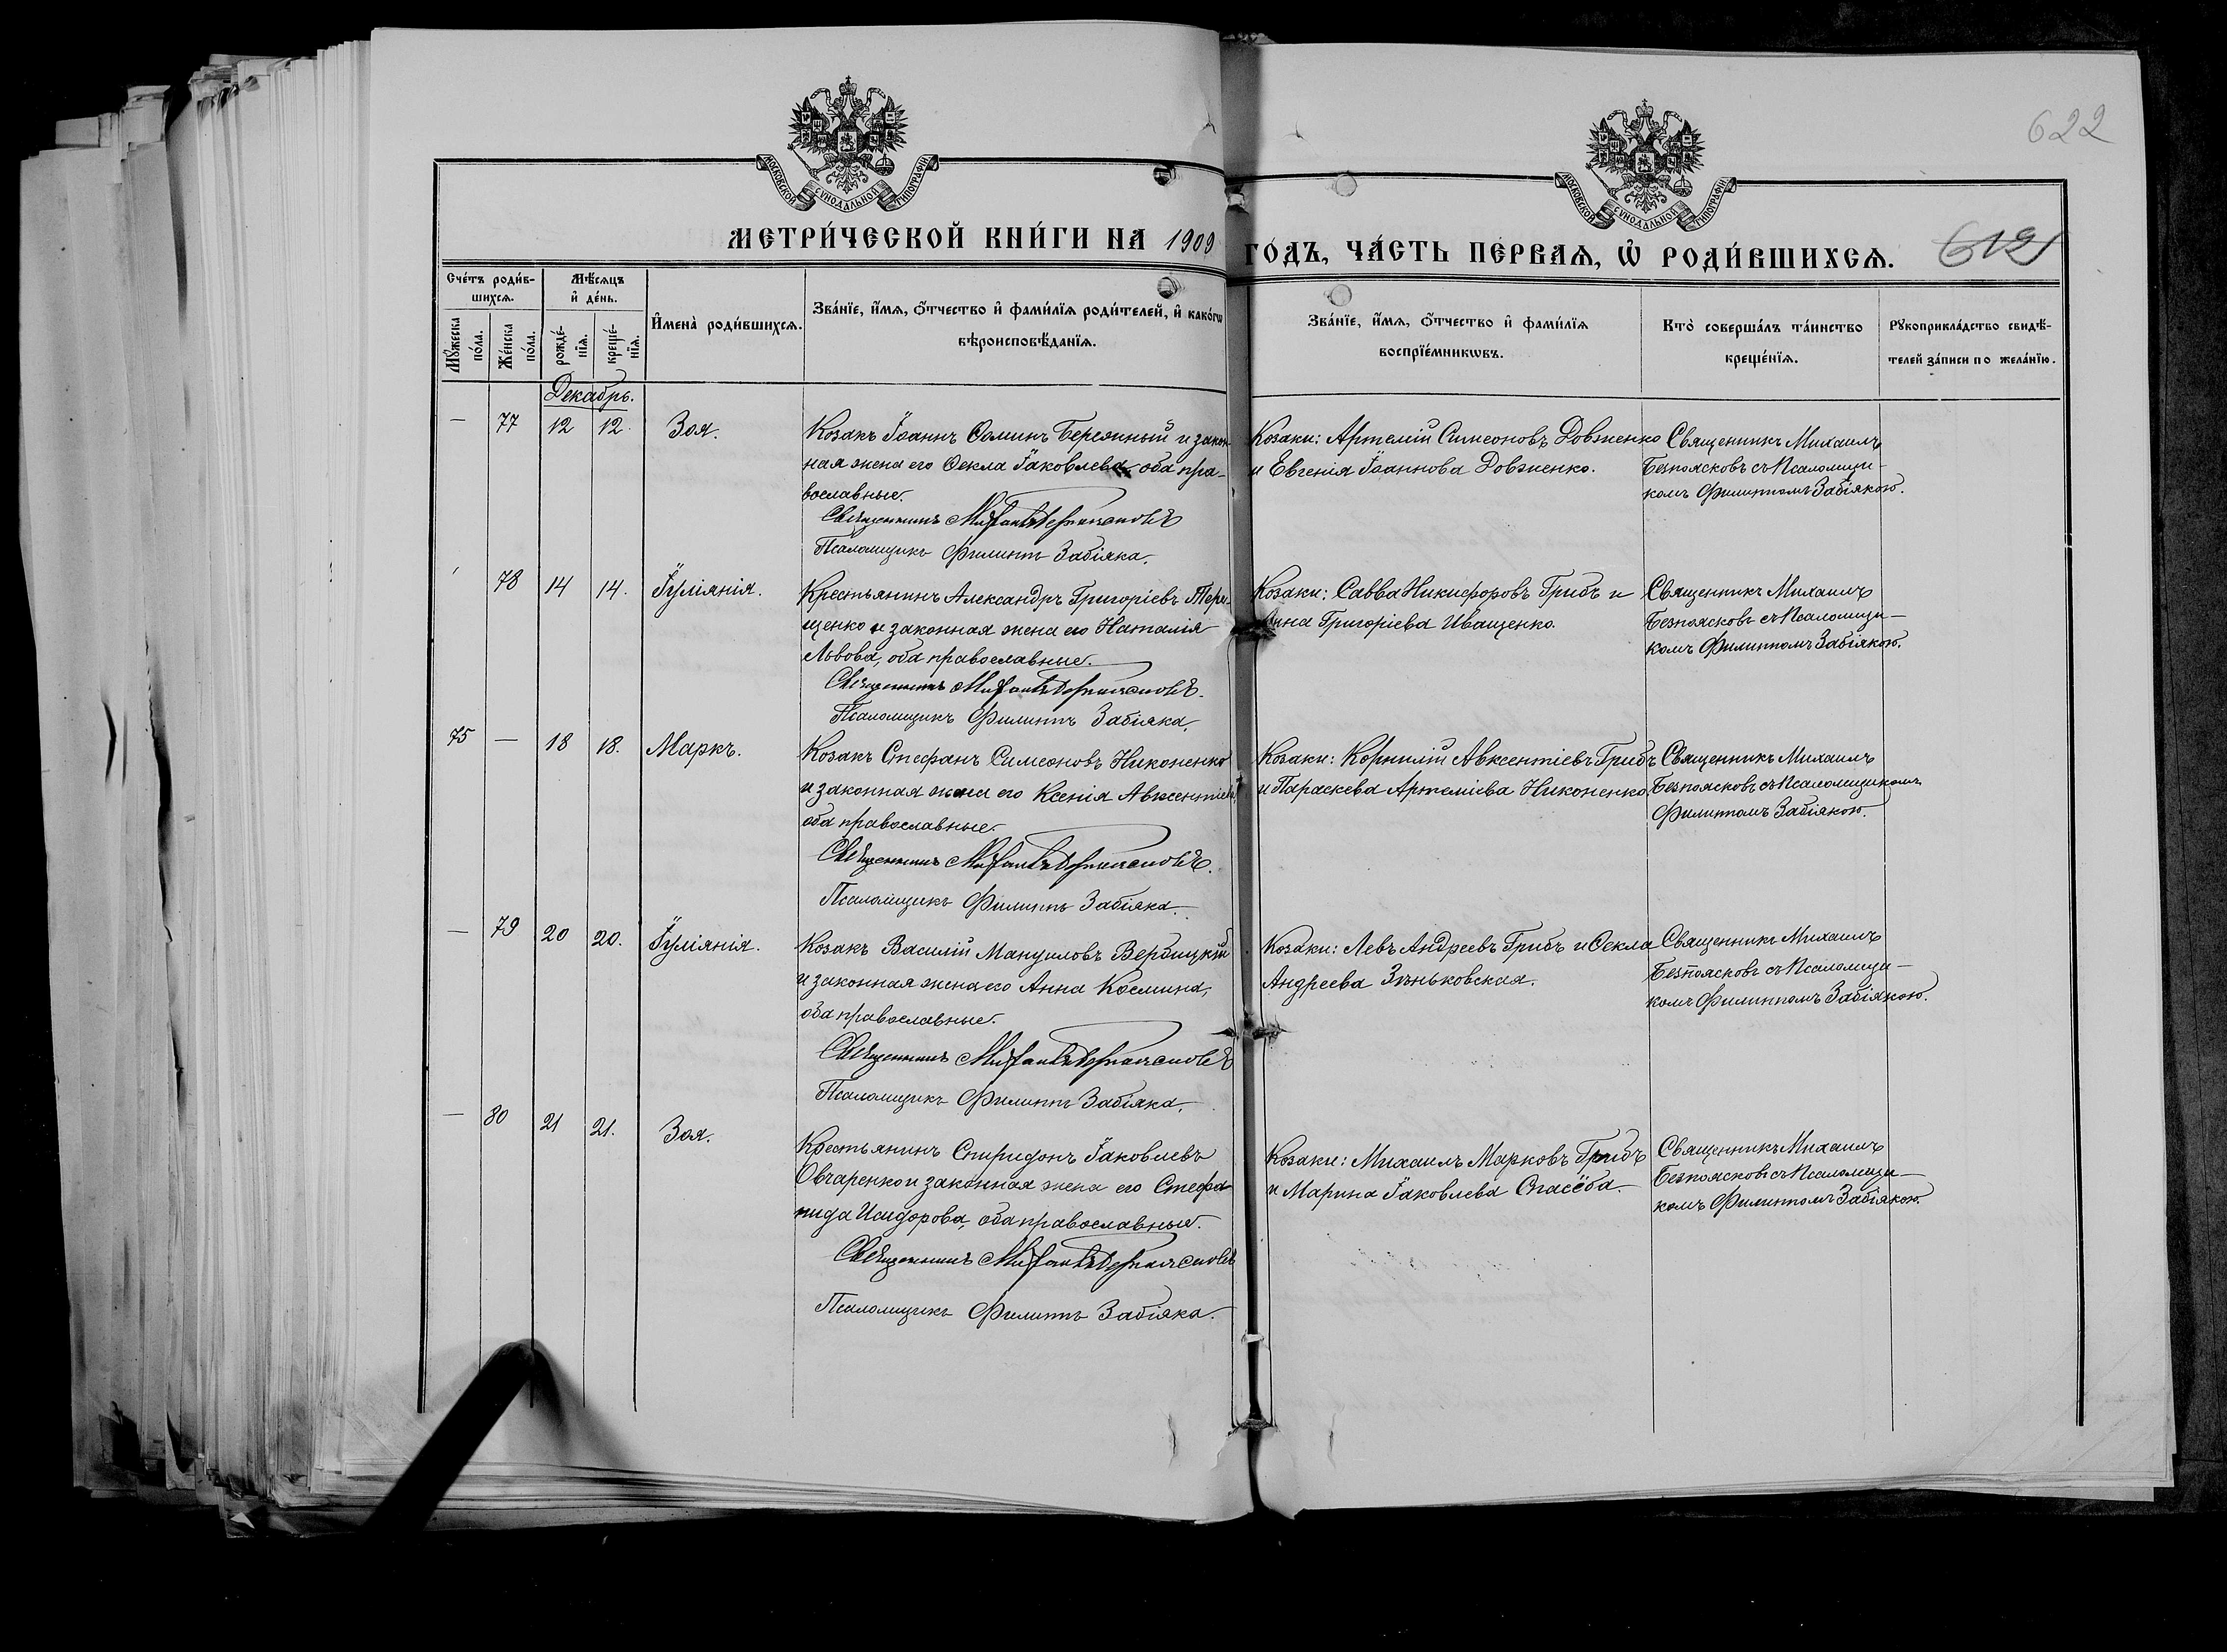 622
МОСКОВСКОЙ СѴНОДАЛЬНОЙ ТИПОГРАФІИ
МОСКОВСКОЙ СѴНОДАЛЬНОЙ ТИПОГРАФІИ
МЕТРИ́ЧЕСКОЙ КНИ́ГИ НА 1909 ГО́ДЪ, ЧА́СТЬ ПЕ́РВАѦ, Ѡ҆ РОДИ́ВШИХСѦ.
Сче́тъ роди́в-
шихсѧ.
Мꙋ́жеска
по́ла.
Же́нска
по́ла.
Мѣ́сѧцъ
и҆ де́нь.
рожде́-
нїѧ.
креще́-
нїѧ.
И҆мена̀ роди́вшихсѧ.
Зва́нїе, и҆́мѧ, ѻ҆́тчество и҆ фами́лїѧ роди́телей, и҆ како́гѡ
вѣроисповѣ́данїѧ.
Зва́нїе, и҆́мѧ, ѻ҆́тчество и҆ фами́лїѧ
воспрїе́мникѡвъ.
Кто̀ соверша́лъ та́инство
креще́нїѧ.
Рꙋкоприкла́дство свидѣ́-
телей за́писи по жела́нїю.
Декабрь.
— 77 12 12. Зоя.
Козакъ Іоаннъ Ѳоминъ Березный и закон-
ная жена его Ѳекла Іаковлева, оба пра-
вославные.
Священникъ Михаилъ Безпоясковъ
Псаломщикъ Филиппъ Забіяка.
Козаки: Артемій Симеоновъ Довженко
и Евгенія Іоаннова Довженко.
Священникъ Михаилъ
Безпоясковъ съ Псаломщи-
комъ Филиппомъ Забіякою.
78 14 14. Іуліянія.
Крестьянинъ Александръ Григоріевъ Тере-
щенко и законная жена его Наталія
Львова, оба православные.
Священникъ Михаилъ Безпоясковъ.
Псаломщикъ Филиппъ Забіяка.
Козаки: Савва Никифоровъ Грибъ и
Анна Григоріева Иващенко.
Священникъ Михаилъ
Безпоясковъ съ Псаломщи-
комъ Филиппомъ Забіякою.
75 — 18 18. Маркъ.
Козакъ Стефанъ Симеоновъ Никоненко
и законная жена его Ксенія Авксентіева,
оба православные.
Священникъ Михаилъ Безпоясковъ.
Псаломщикъ Филиппъ Забіяка.
Козаки: Корнилій Авксентіевъ Грибъ
и Параскева Артеміева Никоненко.
Священникъ Михаилъ
Безпоясковъ съ Псаломщикомъ
Филиппомъ Забіякою.
— 79 20 20. Іуліянія.
Козакъ Василій Мануиловъ Вербицкій
и законная жена его Анна Космина,
оба православные.
Священникъ Михаилъ Безпоясковъ
Псаломщикъ Филиппъ Забіяка.
Козаки: Левъ Андреевъ Грибъ и Ѳекла
Андреева Зѣньковская.
Священникъ Михаилъ
Безпоясковъ съ Псаломщи-
комъ Филиппомъ Забіякою.
— 80 21 21. Зоя.
Крестьянинъ Спиридонъ Іаковлевъ
Овчаренко и законная жена его Стефа-
нида Исидорова, оба православные.
Священникъ Михаилъ Безпоясковъ
Псаломщикъ Филиппъ Забіяка.
Козаки: Михаилъ Марковъ Грибъ
и Марина Іаковлева Спасёба.
Священникъ Михаилъ
Безпоясковъ съ Псаломщи-
комъ Филиппомъ Забіякою.